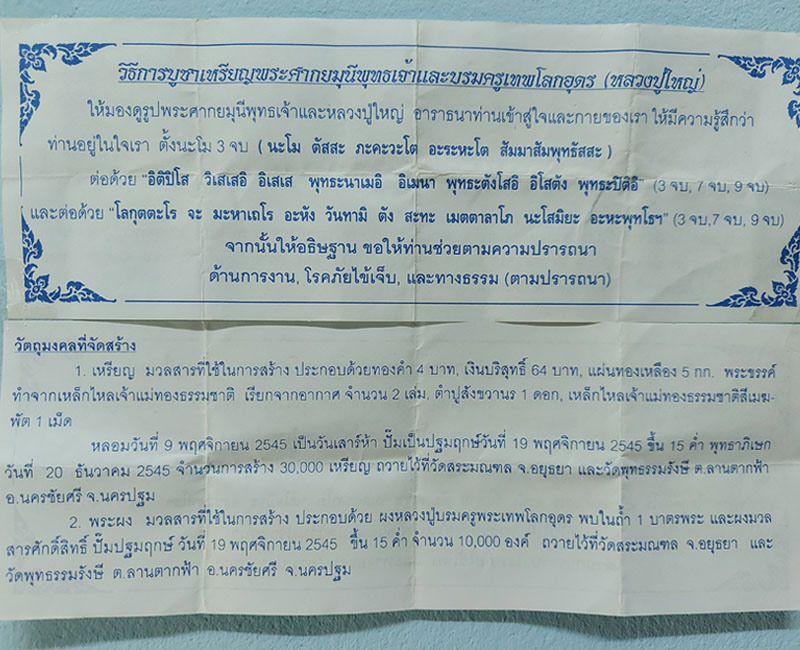 วิธีการบูชาเหรียญพระศากยมุนีพุทธเจ้าและบรมครูเทพโลกอุดร (หลวงปู่ใหญ่)
ให้มองดูรูปพระศากยมุนีพุทธเจ้าและหลวงปู่ใหญ่ อาราธนาท่านเข้าสู่ใจและกายของเรา ให้มีความรู้สึกว่า
ท่านอยู่ในใจเรา ตั้งนะโม 3 จบ ( นะโม ตัสสะ ภะคะวะโต อะระหะโต สัมมาสัมพุทธัสสะ )
ต่อด้วย “อิติปิโส วิเสเสอิ อิเสเส พุทธะนาเมอิ อิเมนา พุทธะตังโสอิ อิโสตัง พุทธะปิติอิ” (3 จบ, 7 จบ, 9 จบ)
และต่อด้วย “โลกุตตะโร จะ มะหาเถโร อะหัง วันทามิ ตัง สะทะ เมตตาลาโภ นะโสมิยะ อะหะพุทโธฯ” (3 จบ,7 จบ, 9 จบ)
จากนั้นให้อธิษฐาน ขอให้ท่านช่วยตามความปรารถนา
ด้านการงาน, โรคภัยไข้เจ็บ, และทางธรรม (ตามปรารถนา)
วัตถุมงคลที่จัดสร้าง
1. เหรียญ มวลสารที่ใช้ในการสร้าง ประกอบด้วยทองคำ 4 บาท, เงินบริสุทธิ์ 64 บาท, แผ่นทองเหลือง 5 กก. พระขรรค์
ทำจากเหล็กไหลเจ้าแม่ทองธรรมชาติ เรียกจากอากาศ จำนวน 2 เล่ม, ตำปูสังขวานร 1 ดอก, เหล็กไหลเจ้าแม่ทองธรรมชาติสีเมฆ-
พัต 1 เม็ด
หลอมวันที่ 9 พฤศจิกายน 2545 เป็นวันเสาร์ห้า ปั๊มเป็นปฐมฤกษ์วันที่ 19 พฤศจิกายน 2545 ขึ้น 15 ค่ำ พุทธาภิเษก
วันที่ 20 ธันวาคม 2545 จำนวนการสร้าง 30,000 เหรียญ ถวายไว้ที่วัดสระมณฑล จ.อยุธยา และวัดพุทธธรรมรังษี ต.ลานตากฟ้า
อ.นครชัยศรี จ.นครปฐม
2. พระผง มวลสารที่ใช้ในการสร้าง ประกอบด้วย ผงหลวงปู่บรมครูพระเทพโลกอุดร พบในถ้ำ 1 บาตรพระ และผงมวล
สารศักดิ์สิทธิ์ ปั๊มปฐมฤกษ์ วันที่ 19 พฤศจิกายน 2545 ขึ้น 15 ค่ำ จำนวน 10,000 องค์ ถวายไว้ที่วัดสระมณฑล จ.อยุธยา และ
วัดพุทธธรรมรังษี ต.ลานตากฟ้า อ.นครชัยศรี จ.นครปฐม